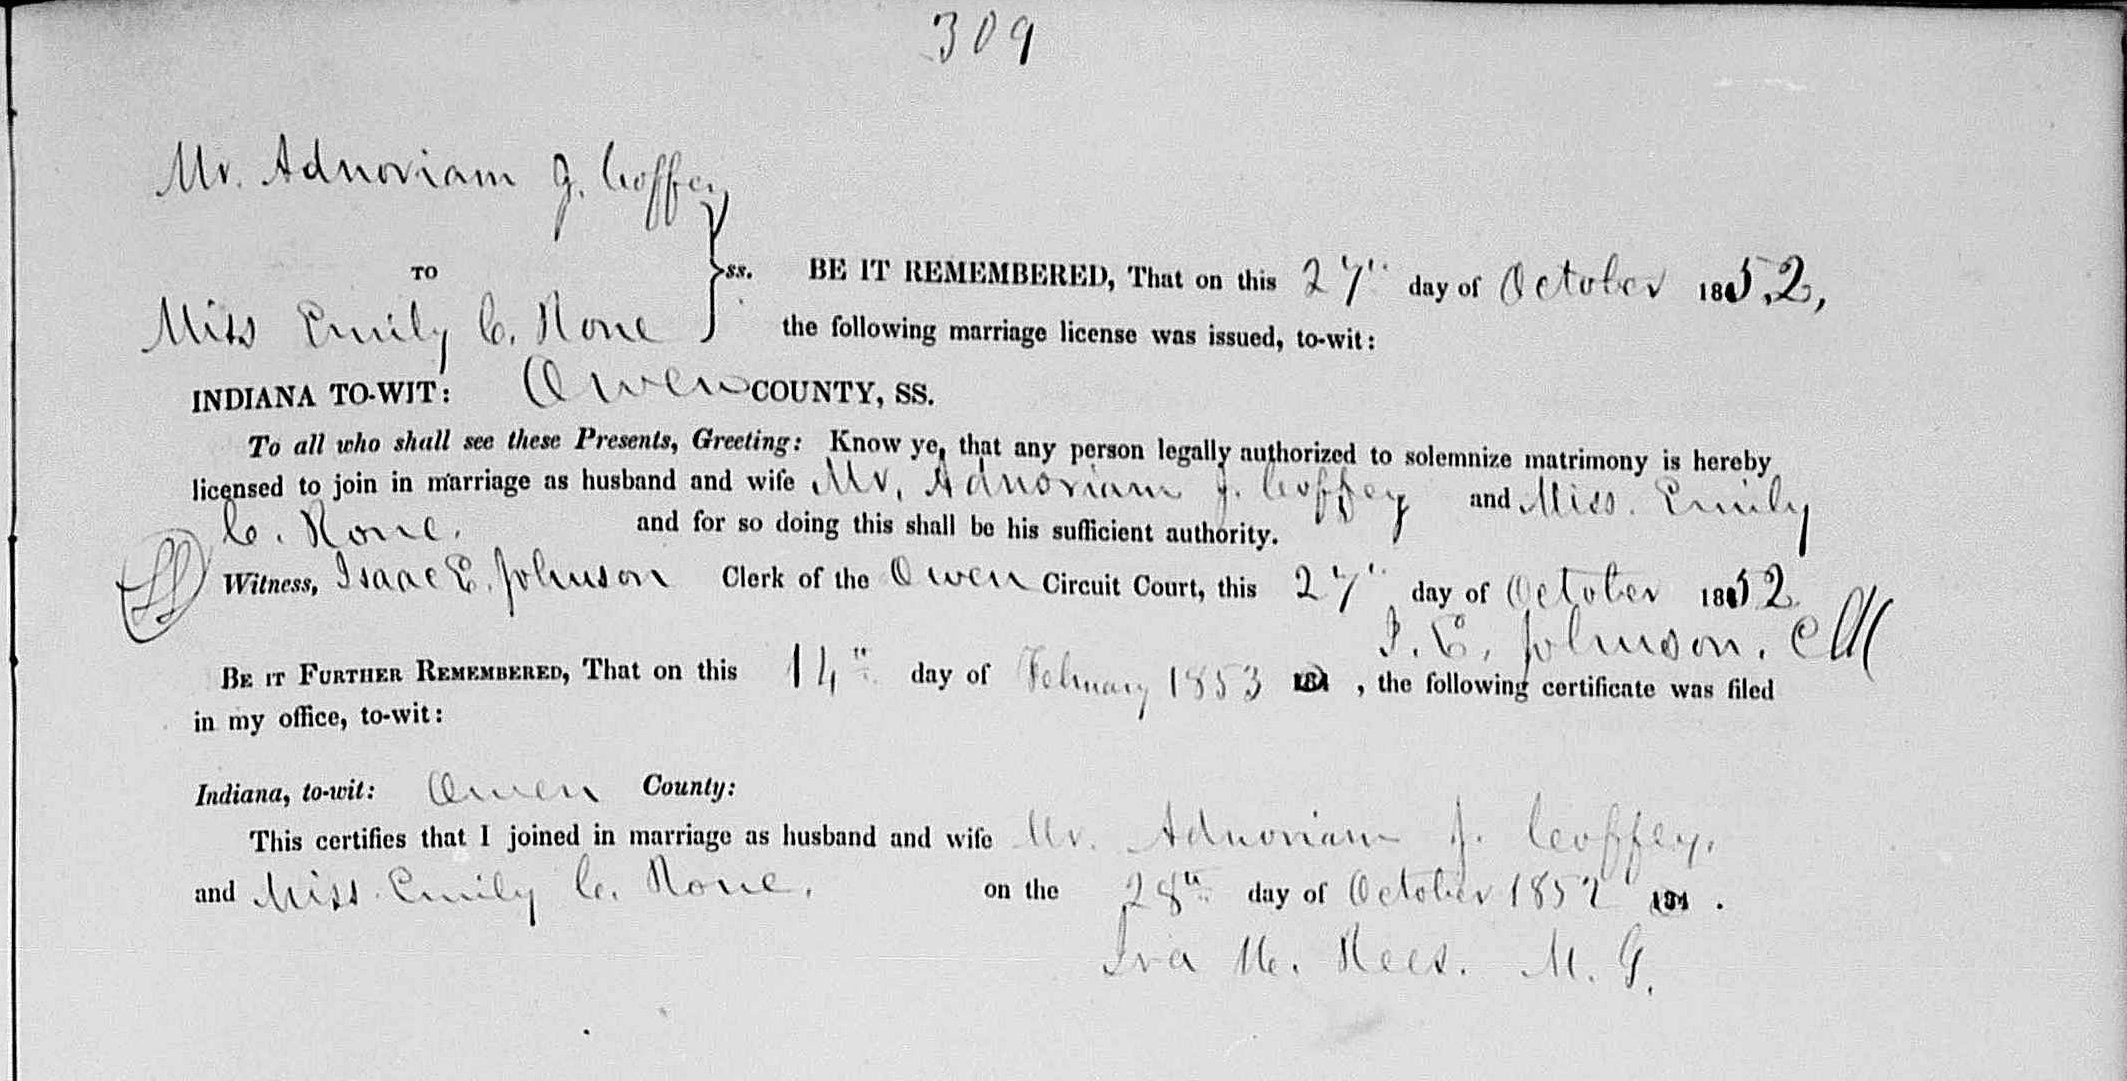 309
Mr. Adnoriam J. Coffey
TO
ss. BE IT REMEMBERED, That on this 27" day of October 1852,
Miss Emily C. Rone the following marriage license was issued, to-wit:
INDIANA TO-WIT: Owen COUNTY, SS.
To all who shall see these Presents, Greeting: Know ye, that any person legally authorized to solemnize matrimony is hereby
licensed to join in marriage as husband and wife Mr. Adnoriam J. Coffey and Miss. Emily
C. Rone. and for so doing this shall be his sufficient authority.
Witness, Isaac E. Johnson Clerk of the Owen Circuit Court, this 27" day of October 1852
I. E. Johnson. Clk
BE IT FURTHER REMEMBERED, That on this 14" day of February 1853 184 , the following certificate was filed
in my office, to-wit:
Indiana, to-wit: Owen County:
This certifies that I joined in marriage as husband and wife Mr. Adnoriam J. Coffey.
and Miss. Emily C. Rone. on the 28" day of October 1852 184 .
Ira M. Rees. M. G.